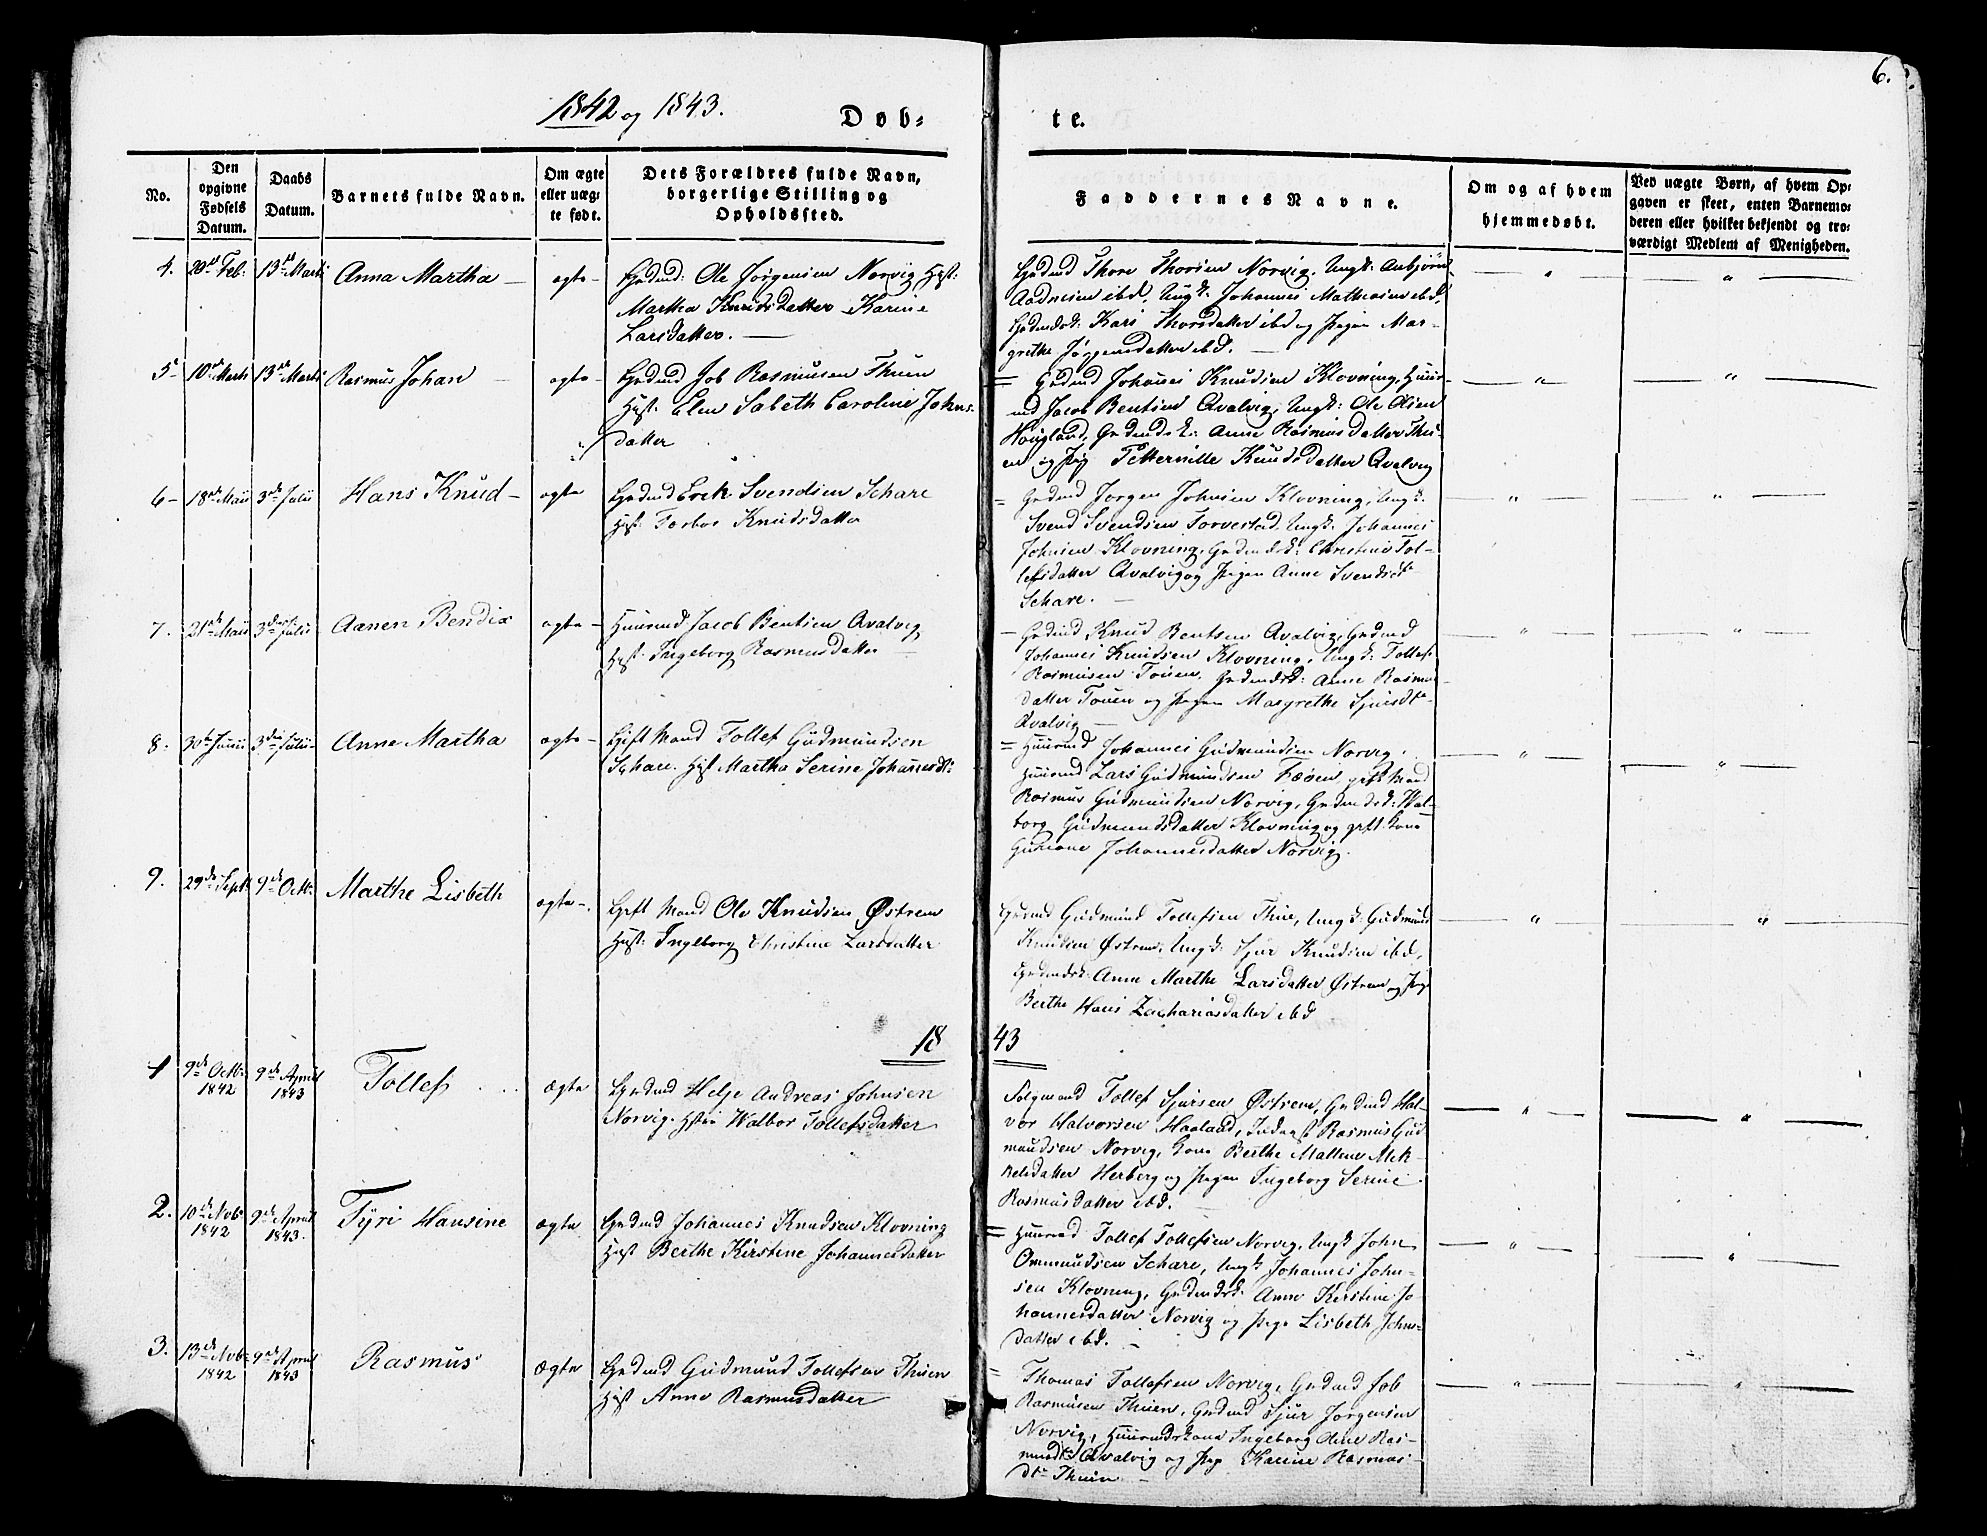 6.
1842 og 1843.
Døb-
te.
No.
Den opgivne Fødsels Datum.
Daabs Datum.
Barnets fulde Navn.
Om ægte eller uægte født.
Dets Forældres fulde Navn, borgerlige Stilling og Opholdssted.
Faddernes Navne.
Om og af hvem hjemmedøbt.
Ved uægte Børn, af hvem Opgaven er skeet, enten Barnemoderen eller hvilket bekjendt og troværdigt Medlem af Menigheden.
4. 20de Feb: 13de Marts Anna Martha ægte
Grdmd: Ole Jørgensen Norvig Hst:
Martha Knudsdatter Karine
Larsdatter.
Grdmd Thore Thorsen Norvig. Ungk: Anbjørn
Aadnesen ibd, Ungk: Johannes Mathiasen ibd,
Kari Thorsdatter ibd og Pigen Mar-
grethe Jørgensdatter ibd.
5 10de Marts 13de Marts Rasmus Johan ægte
Grdmd Job Rasmussen Thuen
Hst: Elen Sabeth Caroline Johns-
datter
Grdmd Johannes Knudsen Klovning, Huus-
md Jacob Bentsen Qvalvig, Ungk: Ole Olsen
Hougland, Anne Rasmusdatter Thu-
en og Pig Petternille Knudsdatter Qvalvig
6 18de Mai 3de Julii Hans Knud ægte
Grdmd Erek Svendsen Schare
Hst: Torbor Knudsdatter
Grdmd Jørgen Johnsen Klovning, Ungk:
Svend Svendsen Torvestad, Ungk: Johannes
Johnsen Klovning, Christine Tol-
lefsdatter Qvalvig og Pigen Anne Svendsdt
Schare.
7. 21de Mai 3die Julii Aanen Bendix ægte
Huusmd Jacob Bentsen Qvalvig
Hst: Ingeborg Rasmusdatter
Grdmd Knud Bentsen Qvalvig, Grdmd
Johannes Knudsen Klovning, Ungk: Tollef
Rasmusen Touen, Anne Rasmus-
datter Touen og Pigen Margrethe Sjursdt
Qvalvig
8. 30te Junii 3die Julii Anne Martha ægte
Gift Mand Tollef Gudmundsen
Schare. Hst Martha Serine Johannesdt:
Huusmd Johannes Gudmundsen Norvig,
Huusmd Lars Gudmundsen Fæøen, gift Mand
Rasmus Gudmundsen Norvig, Wal-
borg Gudmundsdatter Klovning og gift Kone
Johannesdatter Norvig.
9. 29de Septb 9de Octb: Marthe Lisbeth ægte
Gift Mand Ole Knudsen Østrem
Hst: Ingeborg Christine Larsdatter
Grdmd Gudmund Tollefsen Thue, Ungk: Gudmund
Knudsen Østrem, Ungk: Sjur Knudsen ibd,
Anne Marthe Larsdatter Østrem og Pige
Berthe Hans Zachariasdatter ibd
18 43
1 9de Octb: 1842 9de April 1843 Tollef ægte
Grdmd Helje Andreas Johnsen
Norvig. Hstr Walbor Tollefsdatter
Tollef Sjursen Østrem, Grdmd Hal-
vor Halvorsen Haaland, Rasmus Gud-
mundsen Norvig, Kone Berthe Mallene Mik-
kelsdatter Herberg og Pigen Ingeborg Serine
Rasmusdatter ibd.
2. 10de Novb: 1842 9de April 1843. Tyri Hansine ægte
Grdmd Johannes Knudsen Klovning
Hst Berthe Kirstine Johannesdatter
Huusmd Tollef Tollefsen Norvig, Ungk John
Ommundsen Schare, Ungk Johannes John-
sen Klovning, Anne Kirstine Jo-
hannesdatter Norvig og Pige Lisbeth Johns-
datter ibd.
3. 13de Novb: 1842 9de April 1843 Rasmus ægte
Grdmd Gudmund Tollefsen Thuen
Hst Anne Rasmusdatter
Thomas Tollefsen Norvig, Grdmd Job
Rasmusen Thuen, Grdmd Sjur Jørgensen
Norvig, Huusmdskone Ingeborg Oline Ras-
musdt: Qvalvig og Pige Karine Rasmus-
dt: Thuen